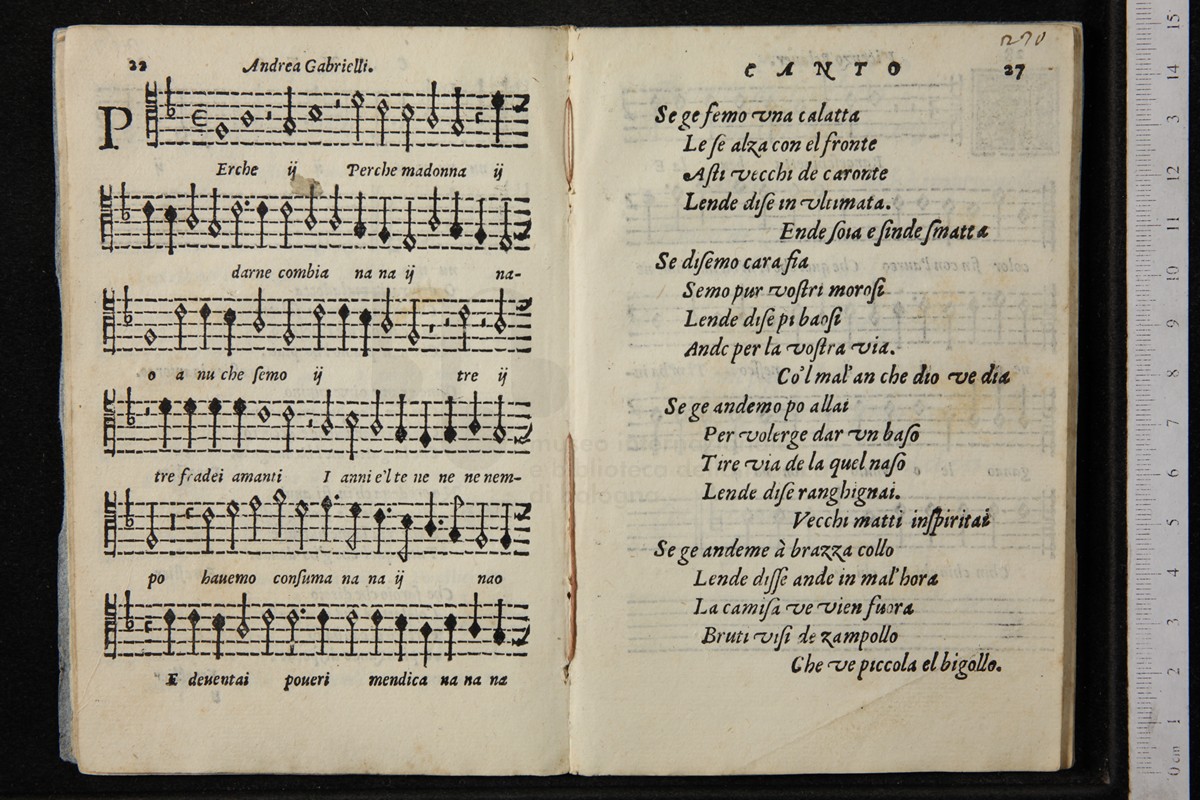 22 Andrea Gabrielli.
P
Erche ij Perche madonna ij
darne combia na na ij na-
o a nu che semo ij tre ij
tre fradei amanti I anni e'l te ne ne ne nem-
po hauemo consuma na na ij nao
E deuentai poueri mendica na na na
1270
CANTO 27
Se ge femo vna calatta
Le se alza con el fronte
Asti vecchi de caronte
Lende dise in vltimata.
Ende soia e sinde smatta
Se disemo cara fia
Semo pur vostri morosi
Lende dise pi baosi
Ande per la vostra via.
Co'l mal'an che dio ve dia
Se ge andemo po allai
Per volerge dar vn baso
Tire via de la quel naso
Lende dise ranghignai.
Vecchi matti inspiritai
Se ge andeme à brazza collo
Lende disse ande in mal'hora
La camisa ve vien fuora
Bruti visi de zampollo
Che ve piccola el bigollo.
museo internazionale
e biblioteca de
di bologna
0 cm 1 2 3 4 5 6 7 8 9 10 11 12 13 14 15